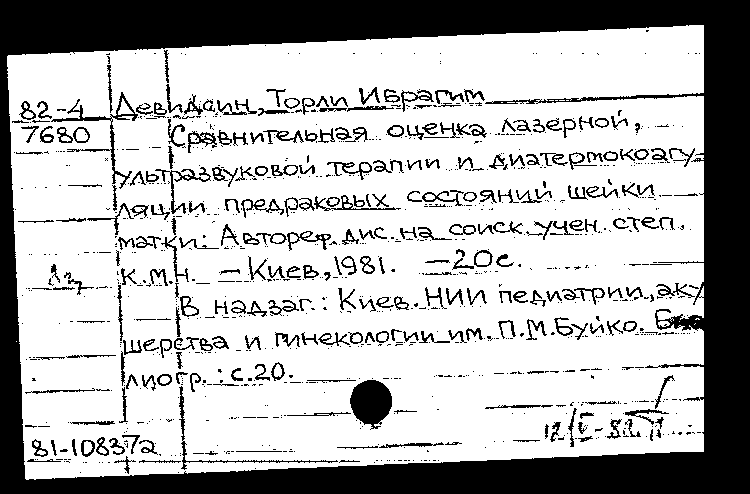 82-4 Девидсин, Торли Ибрагим
7680 Сравнительная оценка лазерной,
ультразвуковой терапии и диатермокоагу-
ляции предраковых состояний шейки
матки: Автореф. дис. на соиск. учен. степ.
к.м.н. – Киев, 1981. – 20с.
В надзаг.: Киев. НИИ педиатрии, аку
шерства и гинекологии им. П.М.Буйко. Биб
лиогр.: с.20.
81-10837а